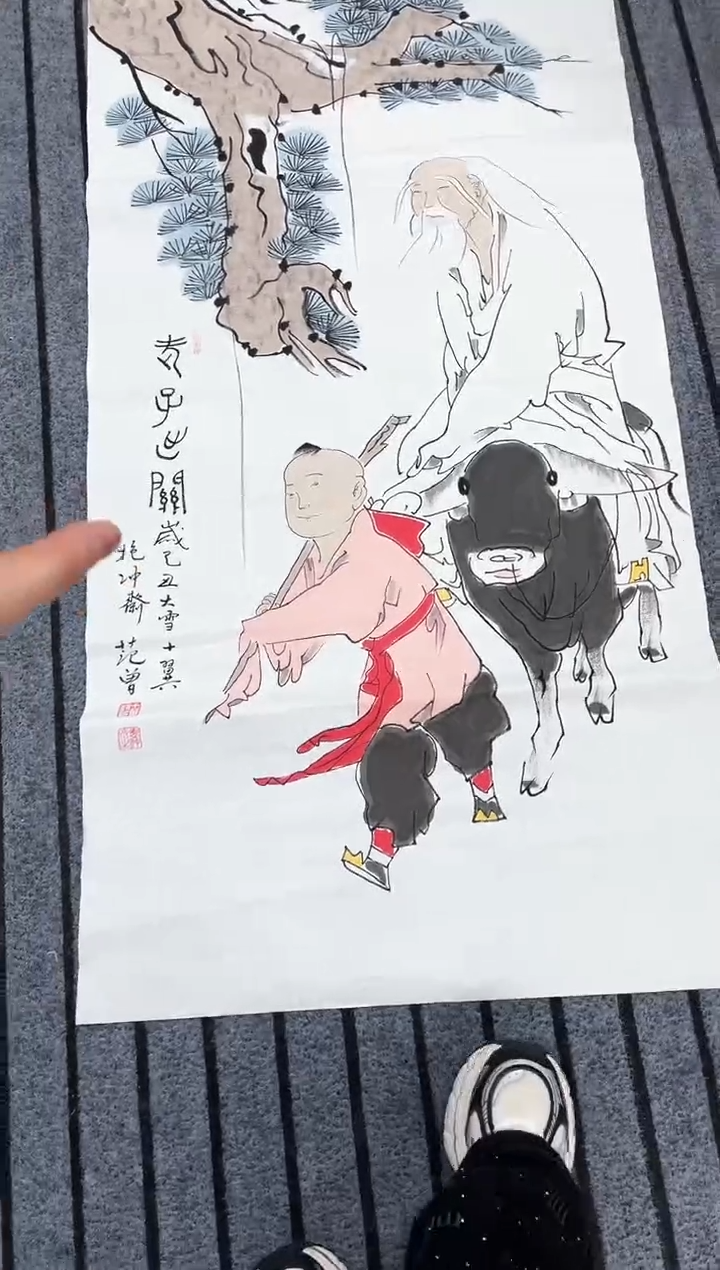 老子出關歲己丑大雪十翼
抱冲齋 范曾